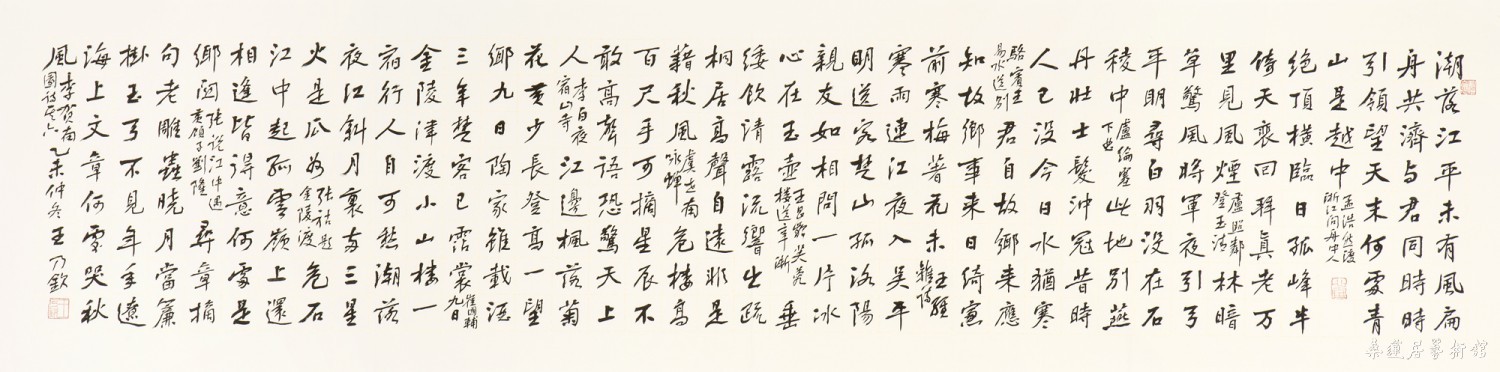 潮落江平未有風扁
舟共濟与君同時時
引領望天末何處青
山是越中 孟浩然渡浙江問舟中人
絕頂橫臨日孤峰半
倚天裵回拜真老万
里見風煙 盧照鄰登玉清 林暗
草驚風將軍夜引弓
平明尋白羽没在石
稜中 盧綸塞下曲 此地別燕
丹壯士髮沖冠昔時
人已没今日水猶寒
駱賓王易水送別 君自故鄉来應
知故鄉事来日綺窻
前寒梅著花未 王維雜詩
寒雨連江夜入吴平
明送客楚山孤洛陽
親友如相問一片冰
心在玉壺 王昌齡芙蓉樓送辛漸 垂
緌飲清露流響出疏
桐居高聲自遠非是
藉秋風 虞世南詠蟬 危樓高
百尺手可摘星辰不
敢高聲語恐驚天上
人 李白夜宿山寺 江邊楓落菊
花黄少長登高一望
鄉九日陶家雖載酒
三年楚客已霑裳 崔國輔九日
金陵津渡小山樓一
宿行人自可愁潮落
夜江斜月裏两三星
火是瓜州 張祜題金陵渡 危石
江中起孤雲嶺上還
相逢皆得意何處是
鄉関 張說江中遇黄領子劉隆 尋章摘
句老雕蟲曉月當簾
掛玉弓不見年年遼
海上文章何處哭秋
風 李賀南園詩其六 乙未仲冬 王乃欽
蓮居藝術館